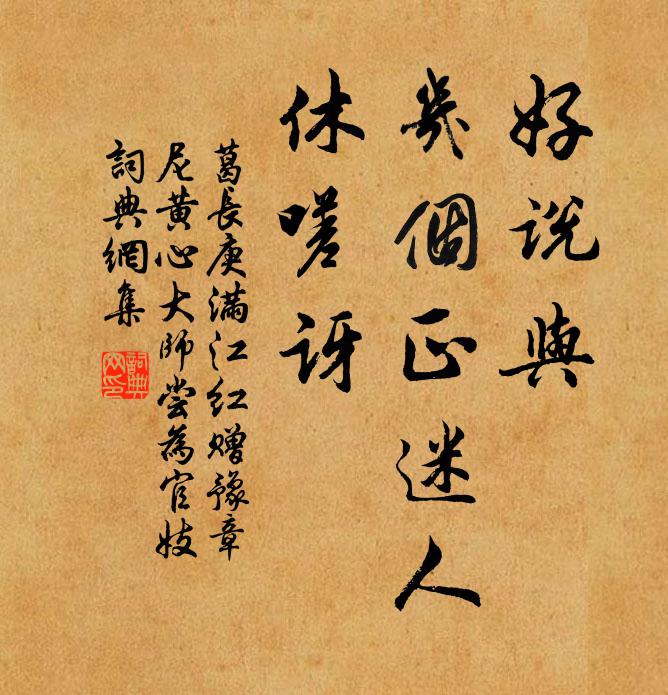 好說與
幾個正迷人
休嗟訝
葛長庚滿江紅贈豫章
尼黃心大師嘗為官妓
詞典網集
詞典网印